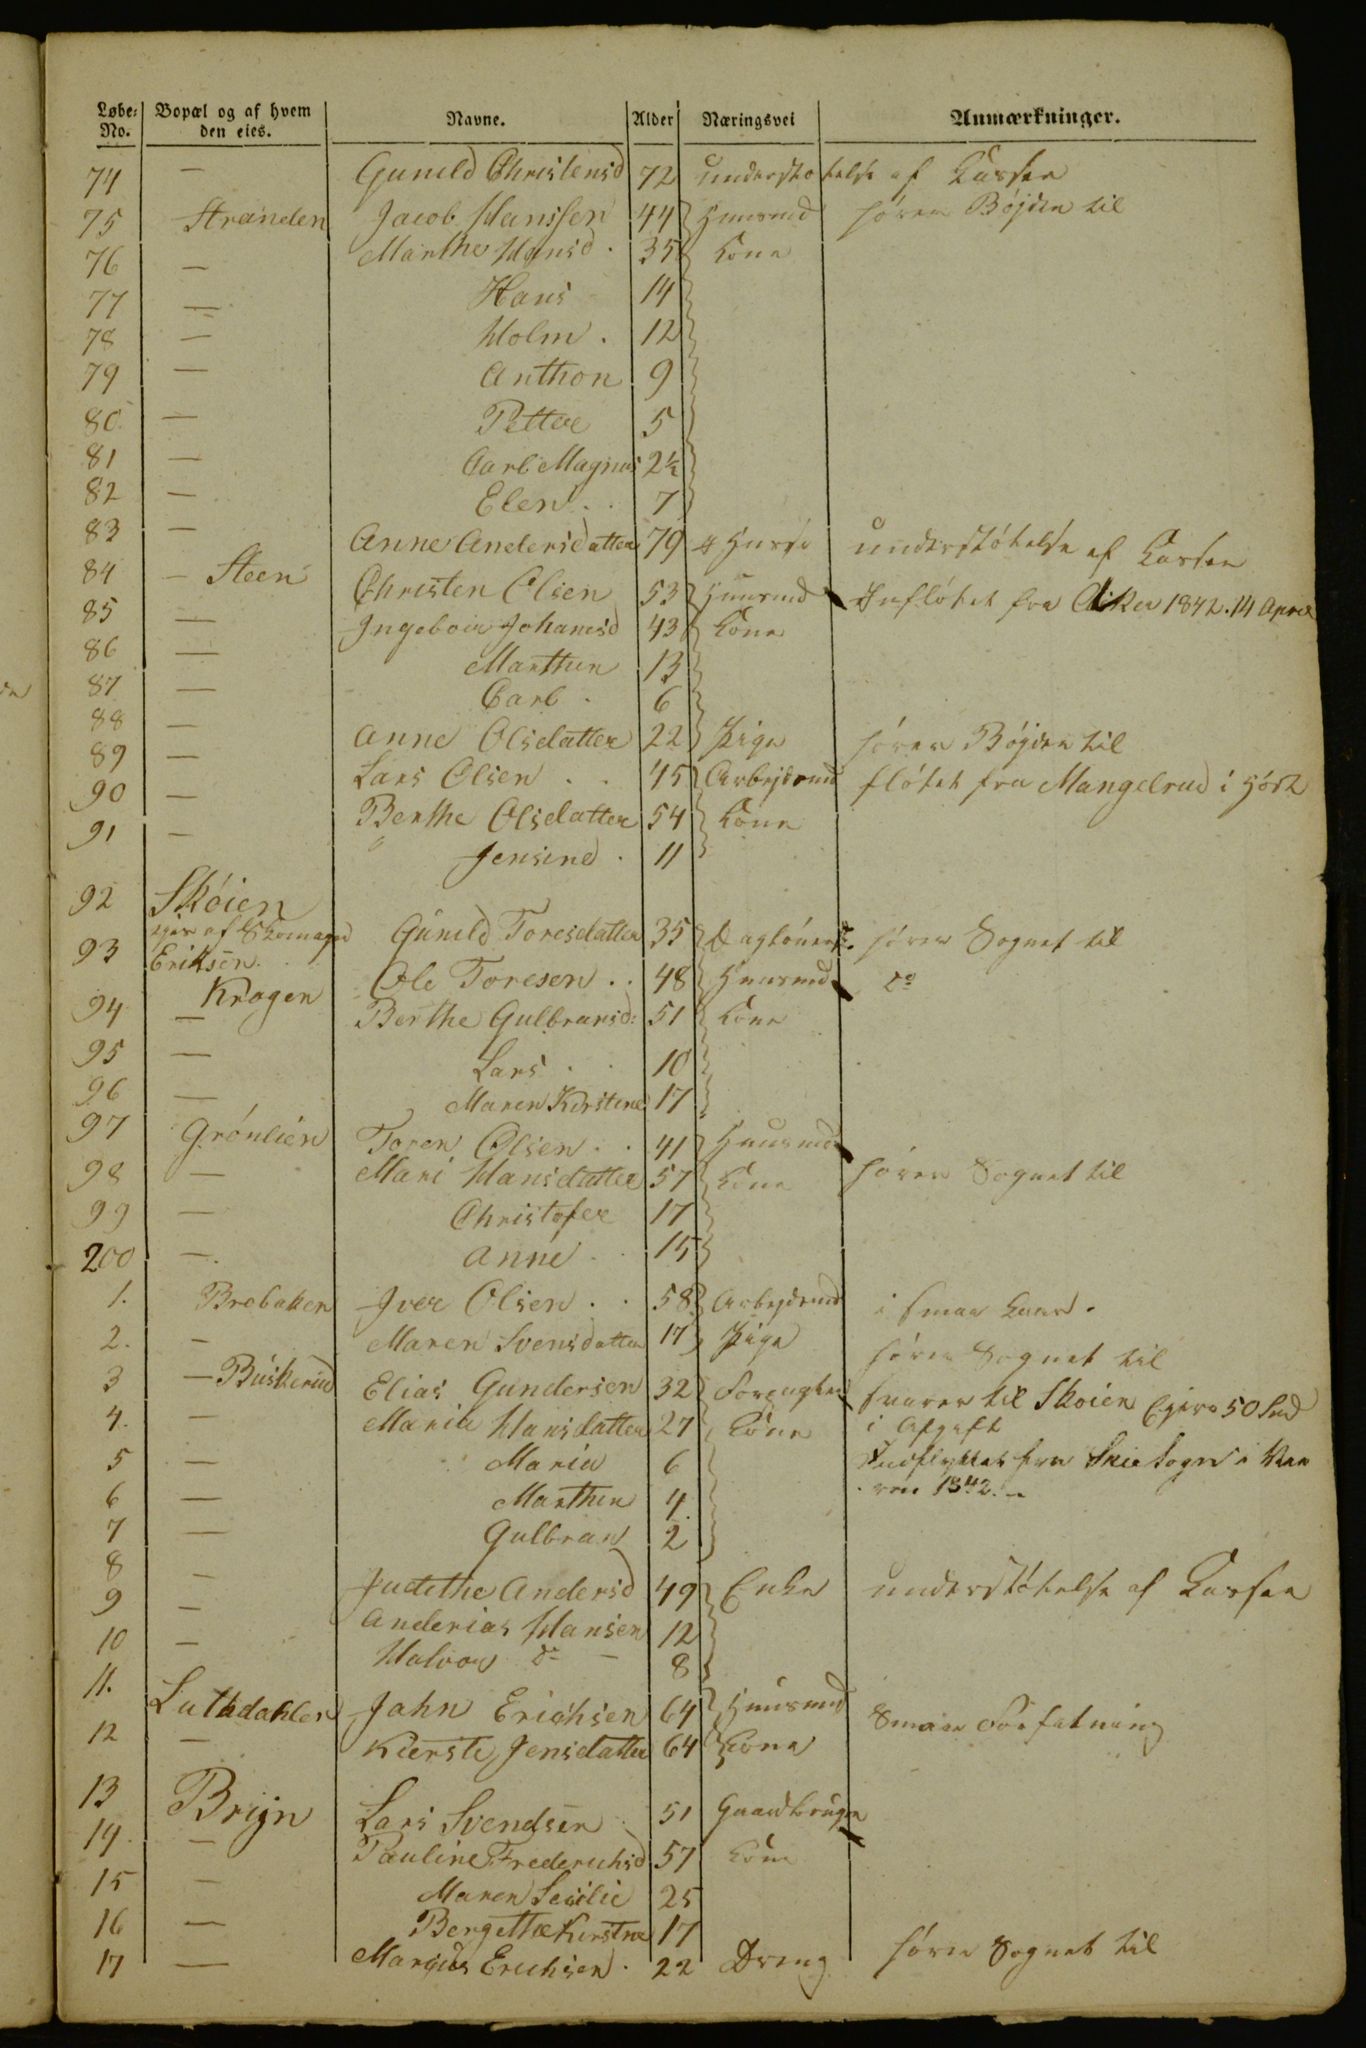 Løbe- No. | Bopæl og af hvem den eies. | Navne. | Alder | Næringsvei | Anmærkninger.
74 — Gunild Christensd 72 understøtelse af Cassen
75 Stranden Jacob Hanssen 44 Huusmd hører Bøjden til
76 — Marthe Hansd. 35 Kone
77 — Hans 14
78 — Holm. 12
79 — Anthon 9
80. — Petter 5
81 — Carl Magnus 2½
82 — Elen.. 7
83 — Anne Andersdatter 79 understøtelse af Cassen
84 — Steen Christen Olsen 53 Huusmd Inflötet fra Aker 1842. 14 April
85 — Ingeboer Johanesd 43 Kone
86 — Marthin 13
87 — Carl. 6
88 — Anne Olsdatter 22 Pige hører Bøjden til
89 — Lars Olsen.. 45 Arbejdsmd flötet fra Mangelrud i Höst
90 — Berthe Olsdatter 54 Kone
91 — Jensine. 11
92 Skóien Gunild Toresdatter 35 hører Sognet til
eies af
93 Eriksen.
Kragen Ole Toresen.. 48 Huusmd do
94 — Berthe Gulbransd: 51 Kone
95 — Lars.. 10
96 — Maren Kirstine 17
97 Grónlien Toren Olsen.. 41 Huusmd
98 — Mari Hansdatter 57 Kone hører Sognet til
99 — Christofer 17
200 — Anne.. 15
1. Brobakken Iver Olsen.. 58 Arbejdsmd i smaa Kaar.
2. — Maren Svensdatter 17 Pige hører Sognet til
3 — Buskerud Elias Gundersen 32 Forpagter svarer til Skoien Ejer 50 Spd
4. — Maria Hansdatter 27 Kone i Afgift
5 — Maria 6 Indflyttet fra Skie Sogn i Vaa
6 — Marthin 4. ren 1842.
7 — Gulbran 2
8 — Judithe Andersd 49 Enke understøtelse af Cassen
9 — Anderias Hansen 12
10 — Halvor do — 8
11. Luthdahlen Jahn Erichsen 64 Huusmd Smaae Forfatning
12 — Kierste Jensdatter 64 Kone
13 Brijn Lars Svendsen 51 Gaardbruger
14. — Pauline Frederichsd 57 Kone
15 — Maren Secilie 25
16 — Bergethe Kirstine 17
17 — Marqius Erichsen. 22 Dreng hører Sognet til